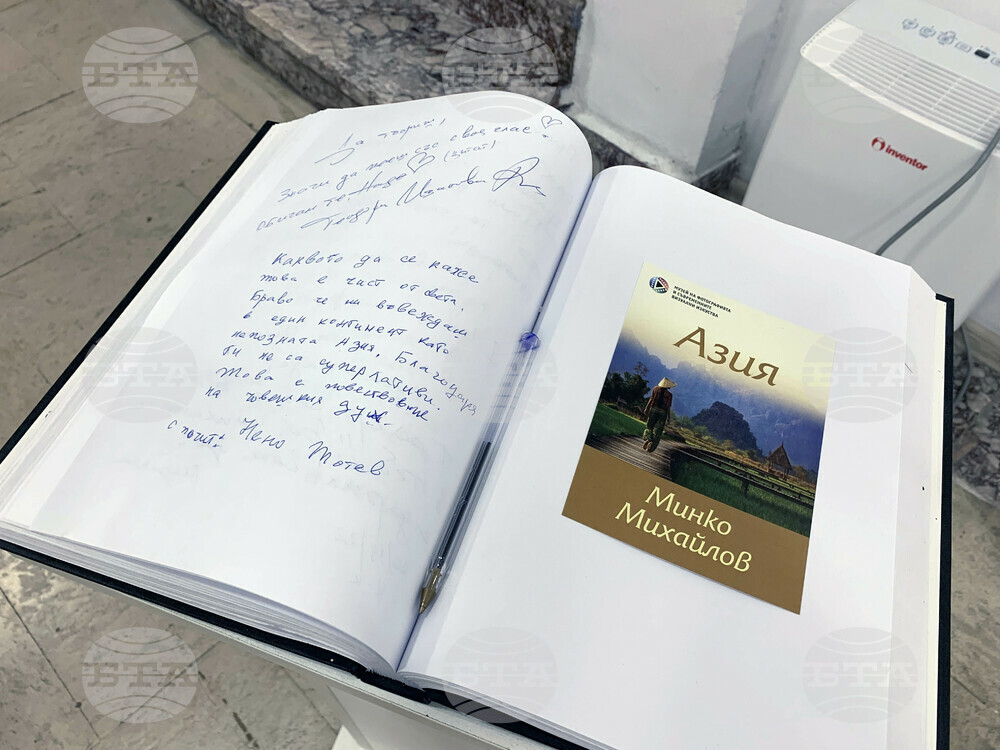 За
да твоят свят
(цитат)
Обичам те! Надя
Теодора
Каквото да се каже
това е част от света.
Браво че ни въвеждаш
в един континент като
непозната Азия. Благодаря
ти не са суперлативи.
Това е повествование
на човешкия дух.
с почит: Нено Тотев
МУЗЕЙ НА ФОТОГРАФИЯТА
И СЪВРЕМЕННИТЕ
ВИЗУАЛНИ ИЗКУСТВА
Азия
Минко
Михайлов
inventor
БТА
БТА
БТА
БТА
БТА
БТА
БТА